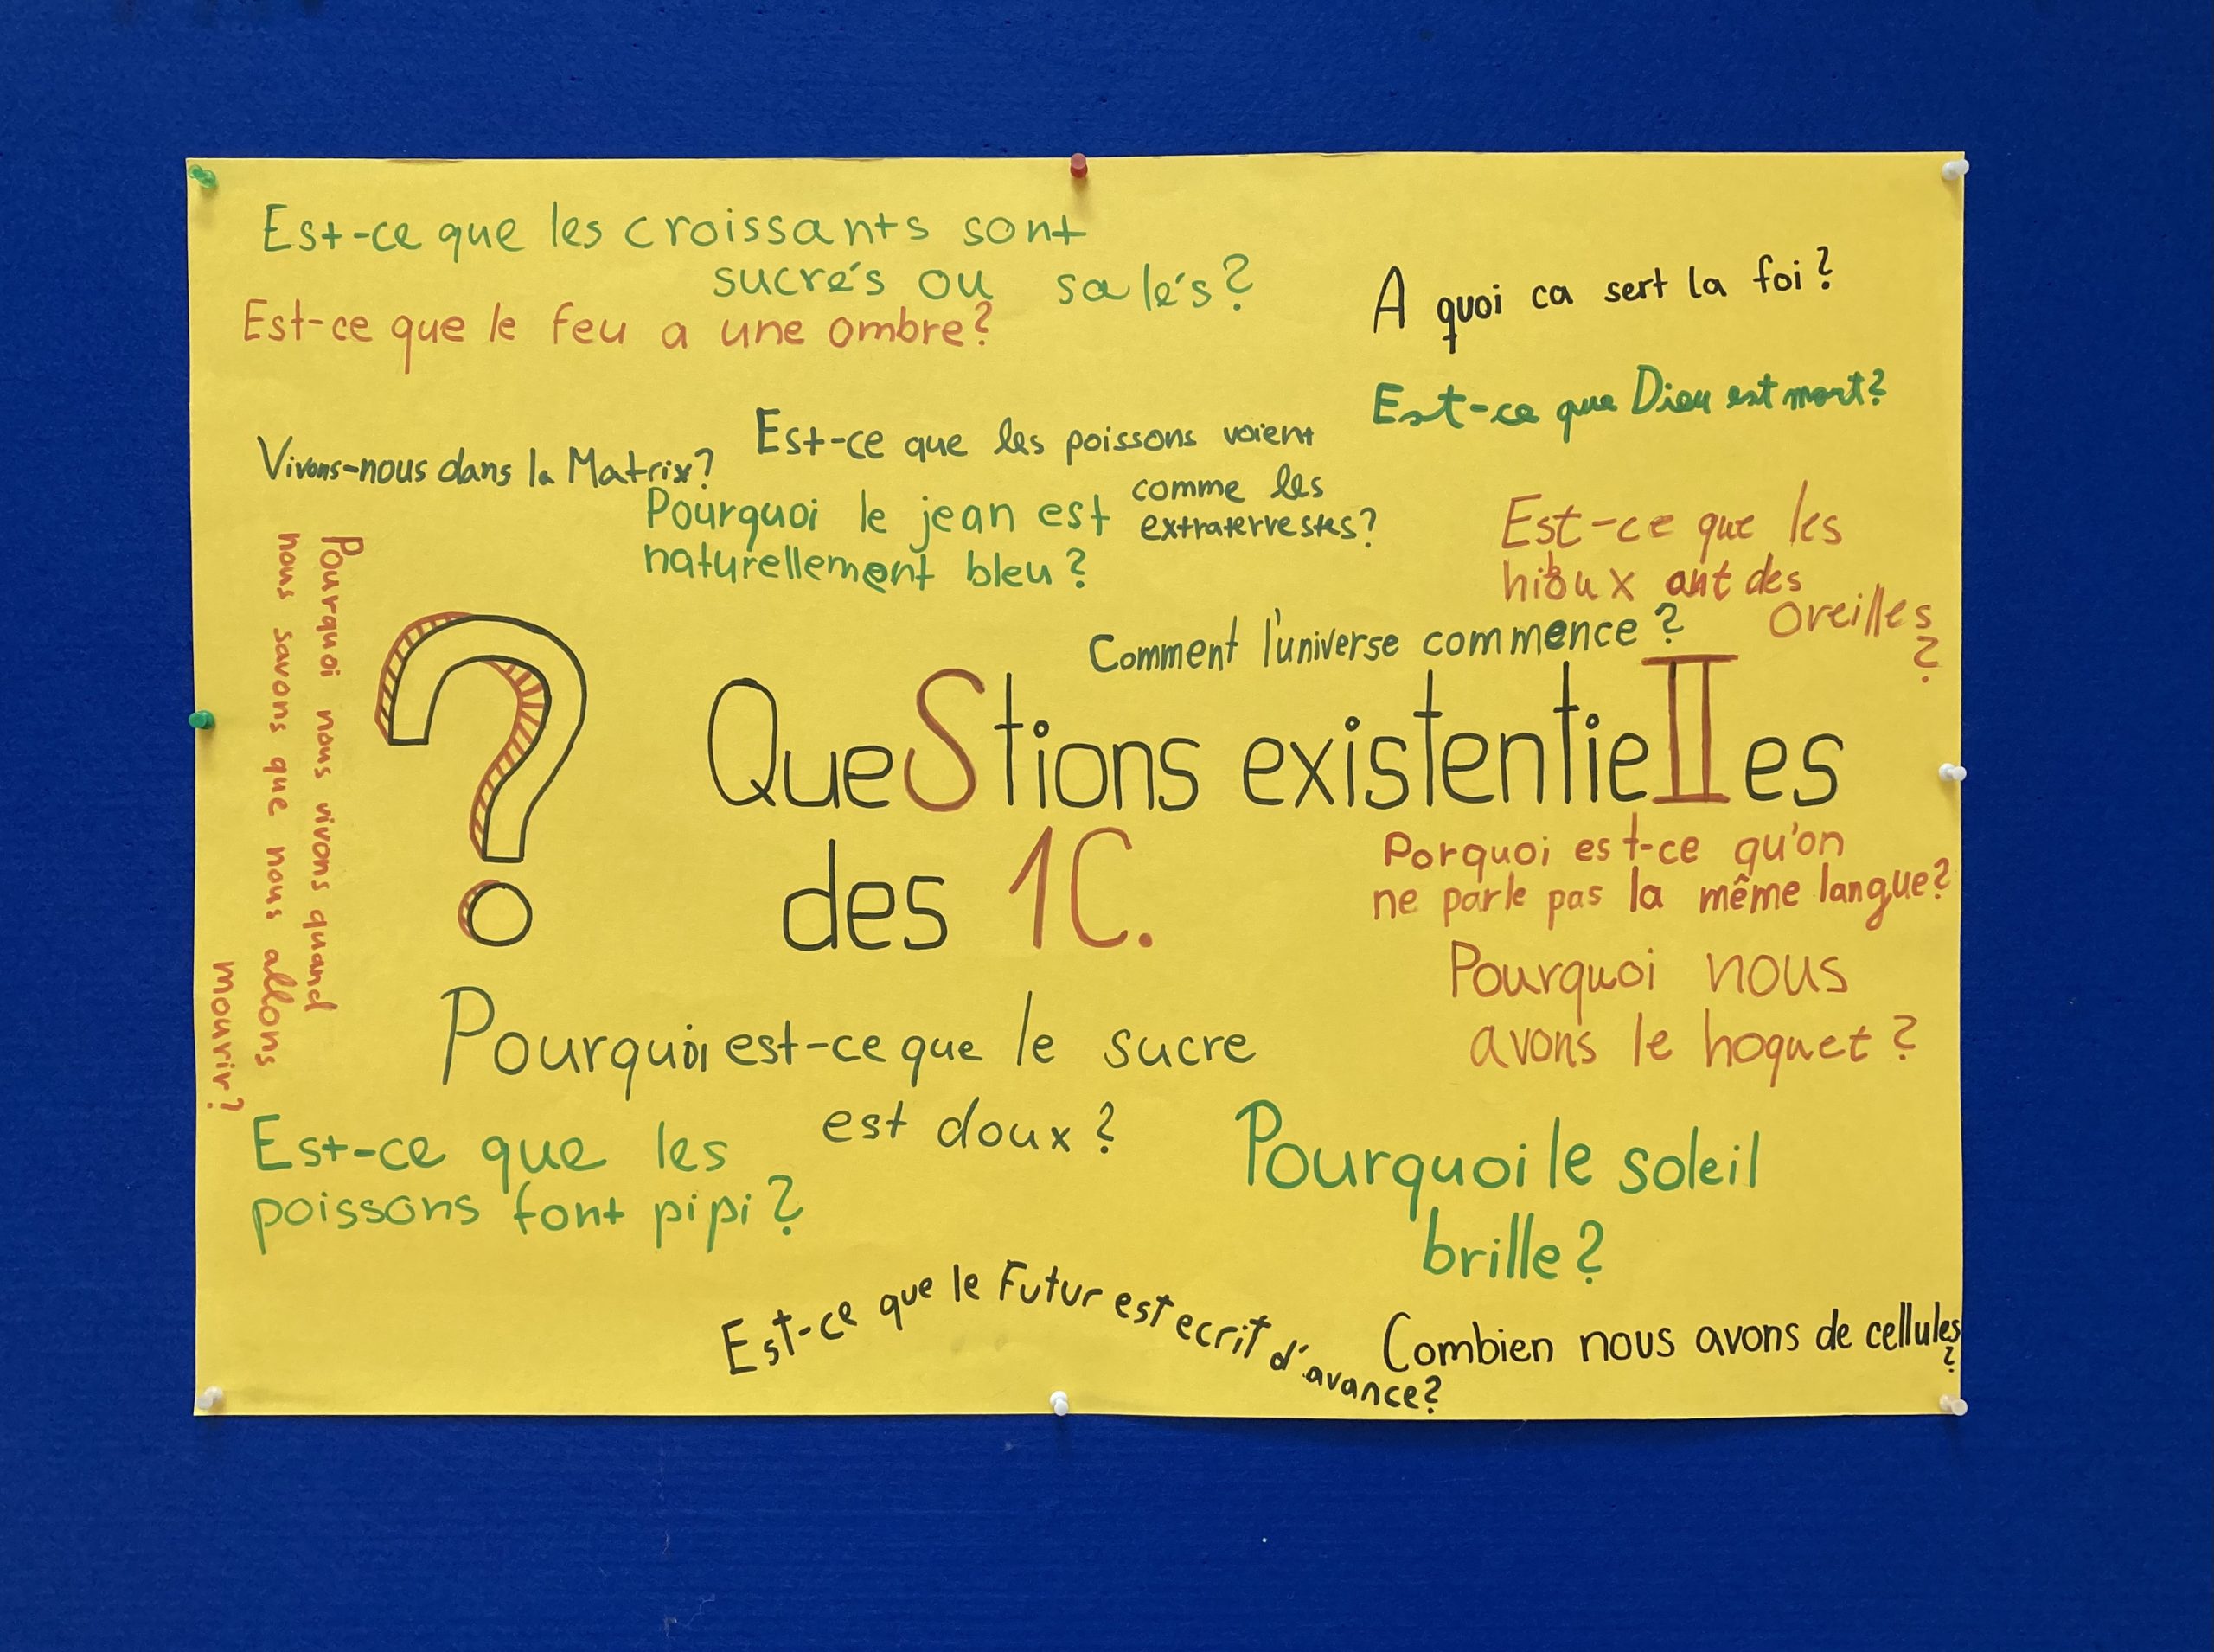 Est-ce que les croissants sont
sucrés ou salés?
Est-ce que le feu a une ombre?
A quoi ca sert la foi?
Est-ce que Dieu est mort?
Vivons-nous dans la Matrix?
Est-ce que les poissons voient
comme les
extraterrestes?
Pourquoi le jean est
naturellement bleu?
Est-ce que les
hiboux ont des
oreilles
?
Comment l'universe commence?
Pourquoi nous vivons quand
nous savons que nous allons
mourir?
?
QueStions existentielles
des 1C.
Porquoi est-ce qu'on
ne parle pas la même langue?
Pourquoi nous
avons le hoquet?
Pourquoi est-ce que le sucre
est doux?
Est-ce que les
poissons font pipi?
Pourquoi le soleil
brille?
Est-ce que le Futur est ecrit d'avance?
Combien nous avons de cellules
?